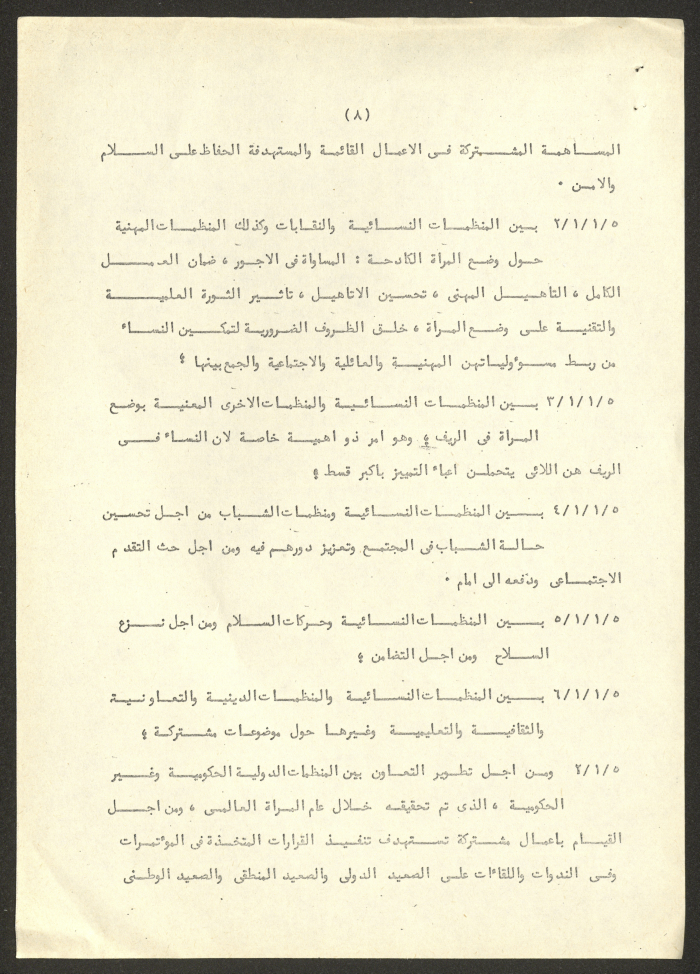 (٨)
المساهمة المشتركة فى الاعمال القائمة والمستهدفة الحفاظ على السلام
والامن ٠
٢/١/١/٥ بين المنظمات النسائية والنقابات وكذلك المنظمات المهنية
حول وضع المرأة الكادحة : المساواة فى الاجور ، ضمان العمل
الكامل ، التاهيل المهنى ، تحسين الاتاهيل ، تاثير الثورة العلمية
والتقنية على وضع المرأة ، خلق الظروف الضرورية لتمكين النساء
من ربط مسوءولياتهن المهنية والعائلية والاجتماعية والجمع بينها ؛
٣/١/١/٥ بين المنظمات النسائية والمنظمات الاخرى المعنية بوضع
المرأة فى الريف ؛ وهو امر ذو اهمية خاصة لان النساء فى
الريف هن اللائى يتحملن اعباء التمييز باكبر قسط ؛
٤/١/١/٥ بين المنظمات النسائية ومنظمات الشباب من اجل تحسين
حالة الشباب فى المجتمع وتعزيز دورهم فيه ومن اجل حث التقدم
الاجتماعى ودفعه الى امام ٠
٥/١/١/٥ بين المنظمات النسائية وحركات السلام ومن اجل نزع
السلاح ومن اجل التضامن ؛
٦/١/١/٥ بين المنظمات النسائية والمنظمات الدينية والتعاونية
والثقافية والتعليمية وغيرها حول موضوعات مشتركة ؛
٢/١/٥ ومن اجل تطوير التعاون بين المنظمات الدولية الحكومية وغير
الحكومية ، الذى تم تحقيقه خلال عام المرأة العالمى ، ومن اجل
القيام باعمال مشتركة تستهدف تنفيذ القرارات المتخذة فى الموءتمرات
وفى الندوات واللقاءات على الصعيد الدولى والصعيد المنطقى والصعيد الوطنى